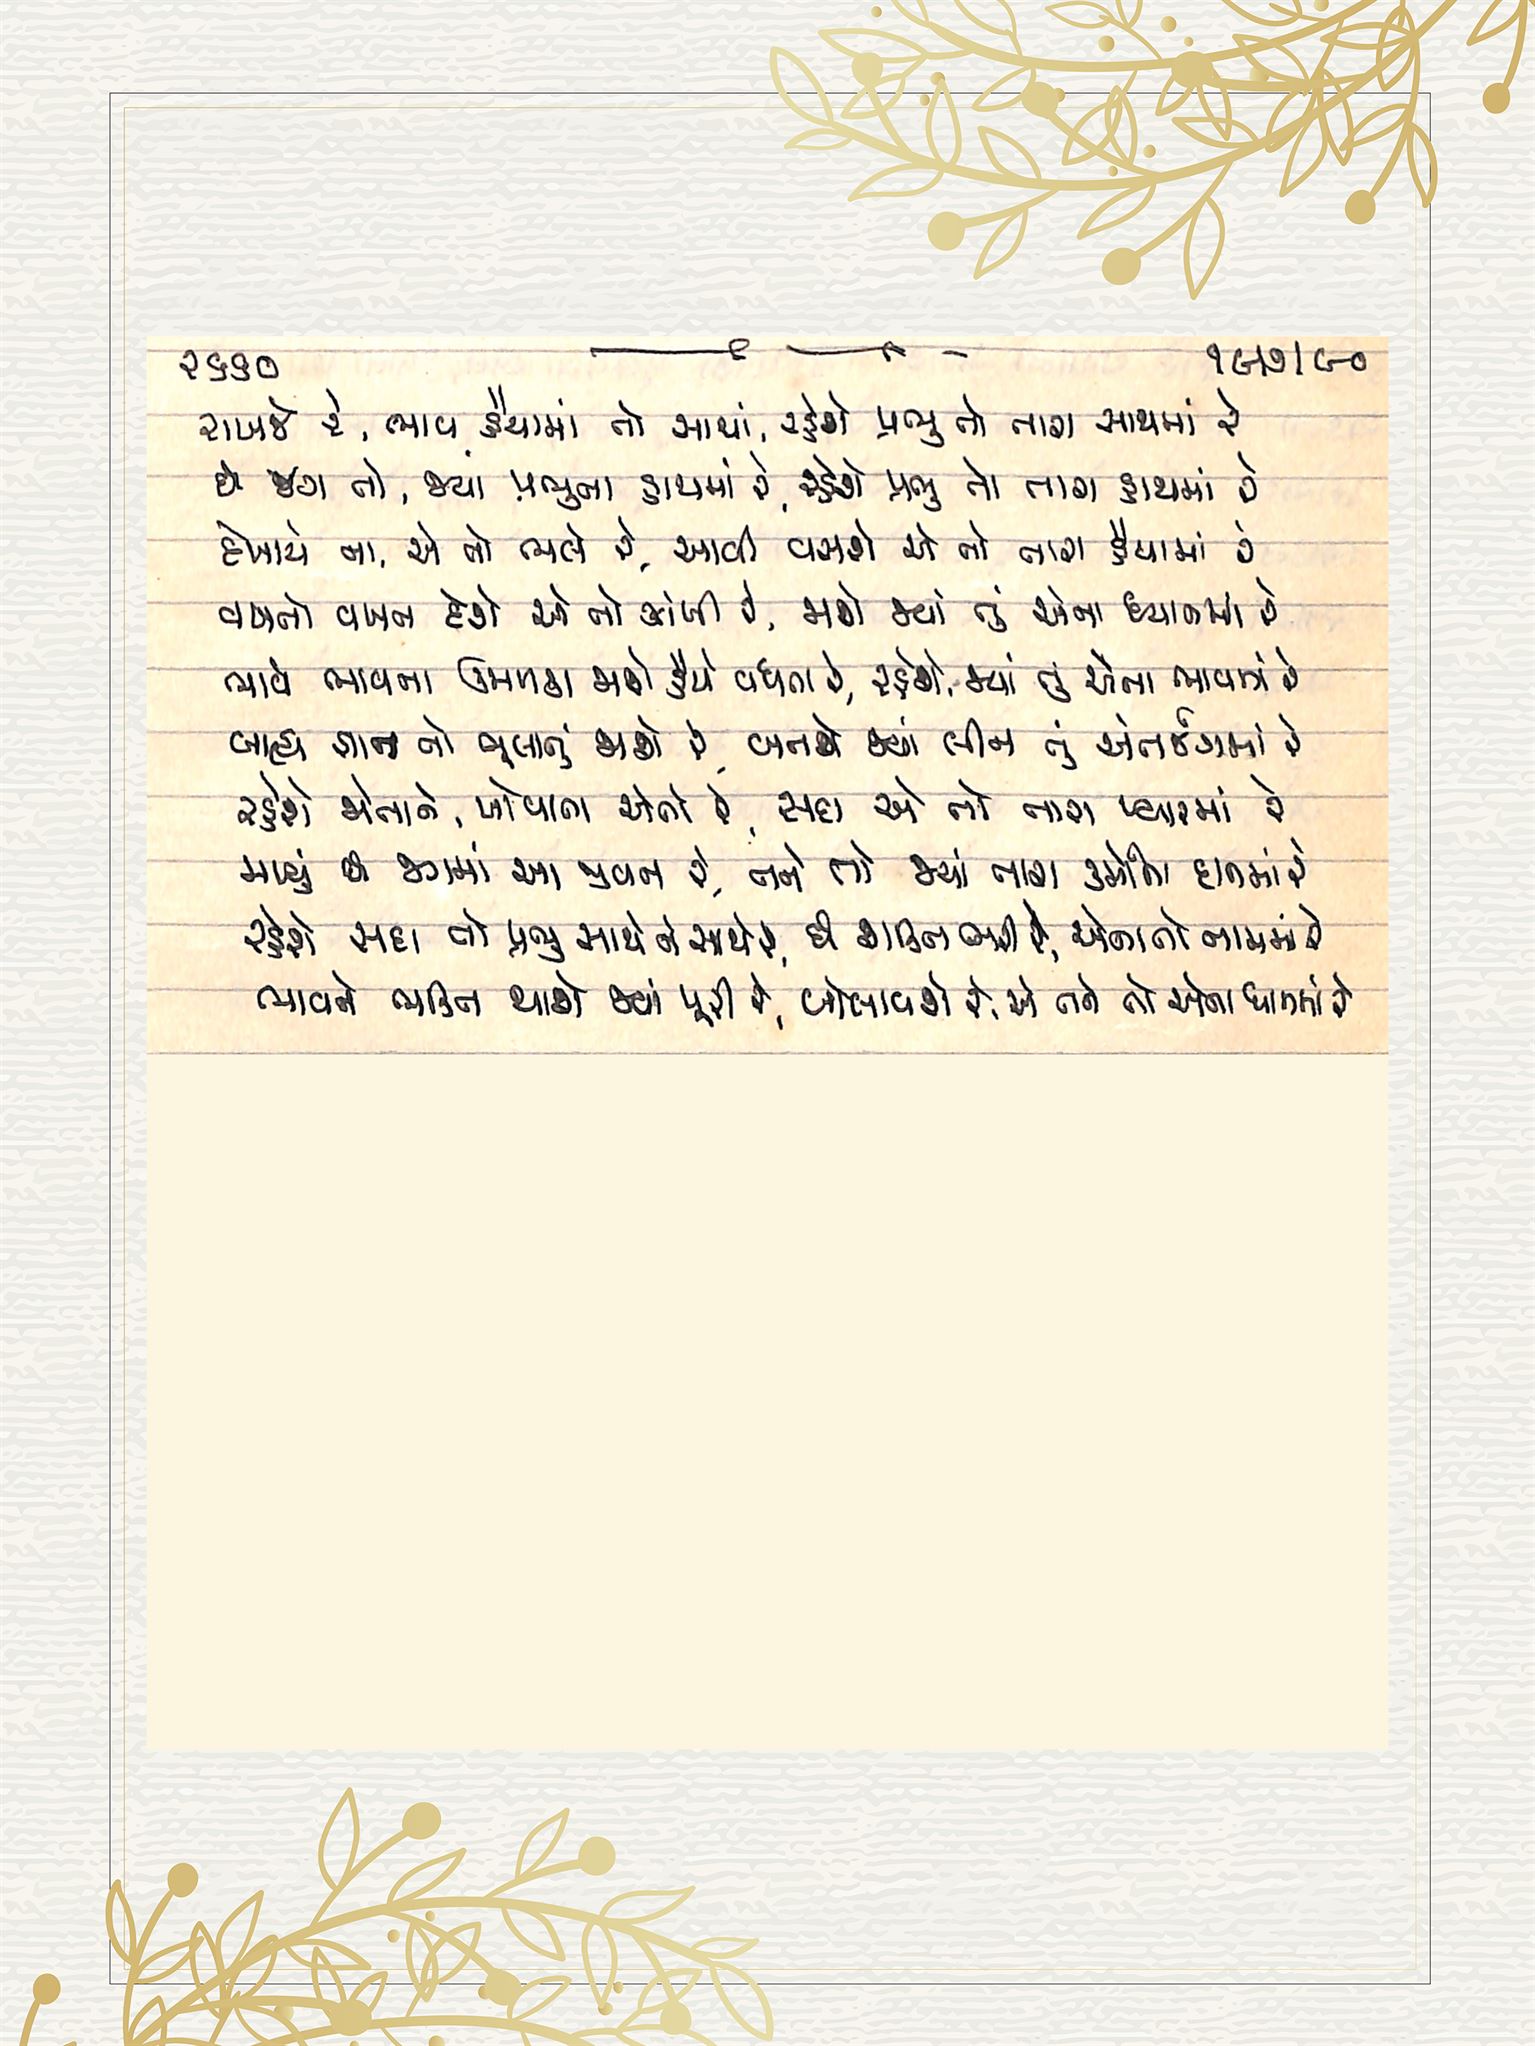 ૨૬૬૦ ૧૯/૭/૯૦
રાખજે રે, ભાવ હૈયામાં તો સાચાં, રહેશે પ્રભુ તો તારા સાથમાં રે
છે જગ તો, જ્યાં પ્રભુના હાથમાં રે, રહેશે પ્રભુ તો તારા હાથમાં રે
દેખાયે ના, એ તો ભલે રે, આવી વસશે એ તો તારા હૈયામાં રે
વખતો વખત દેશે એ તો ઝાંખી રે, જાશે જ્યાં તું એના ધ્યાનમાં રે
ભાવે ભાવના ઉમળકા જાશે હૈયે વધતા રે, રહેશે જ્યાં તું એના ભાવમાં રે
બાહ્ય જ્ઞાન તો ભૂલાતું જાશે રે, બનશે જ્યાં લીન તું એના રંગમાં રે
રહેશે જોતાને, ખોવાતા એતો રે, સદા એ તો તારા પ્યારમાં રે
મળ્યું છે જગમાં આ જીવન રે, તને તો જ્યાં તારા કર્મોના દાનમાં રે
રહેશે સદા તો પ્રભુ સાથે ને સાથે રે, છે શક્તિ ભરી રે, એના તો નામમાં રે
ભાવને ભક્તિ થાશે જ્યાં પૂરી રે, બોલાવશે રે, એ તને તો એના ધામમાં રે